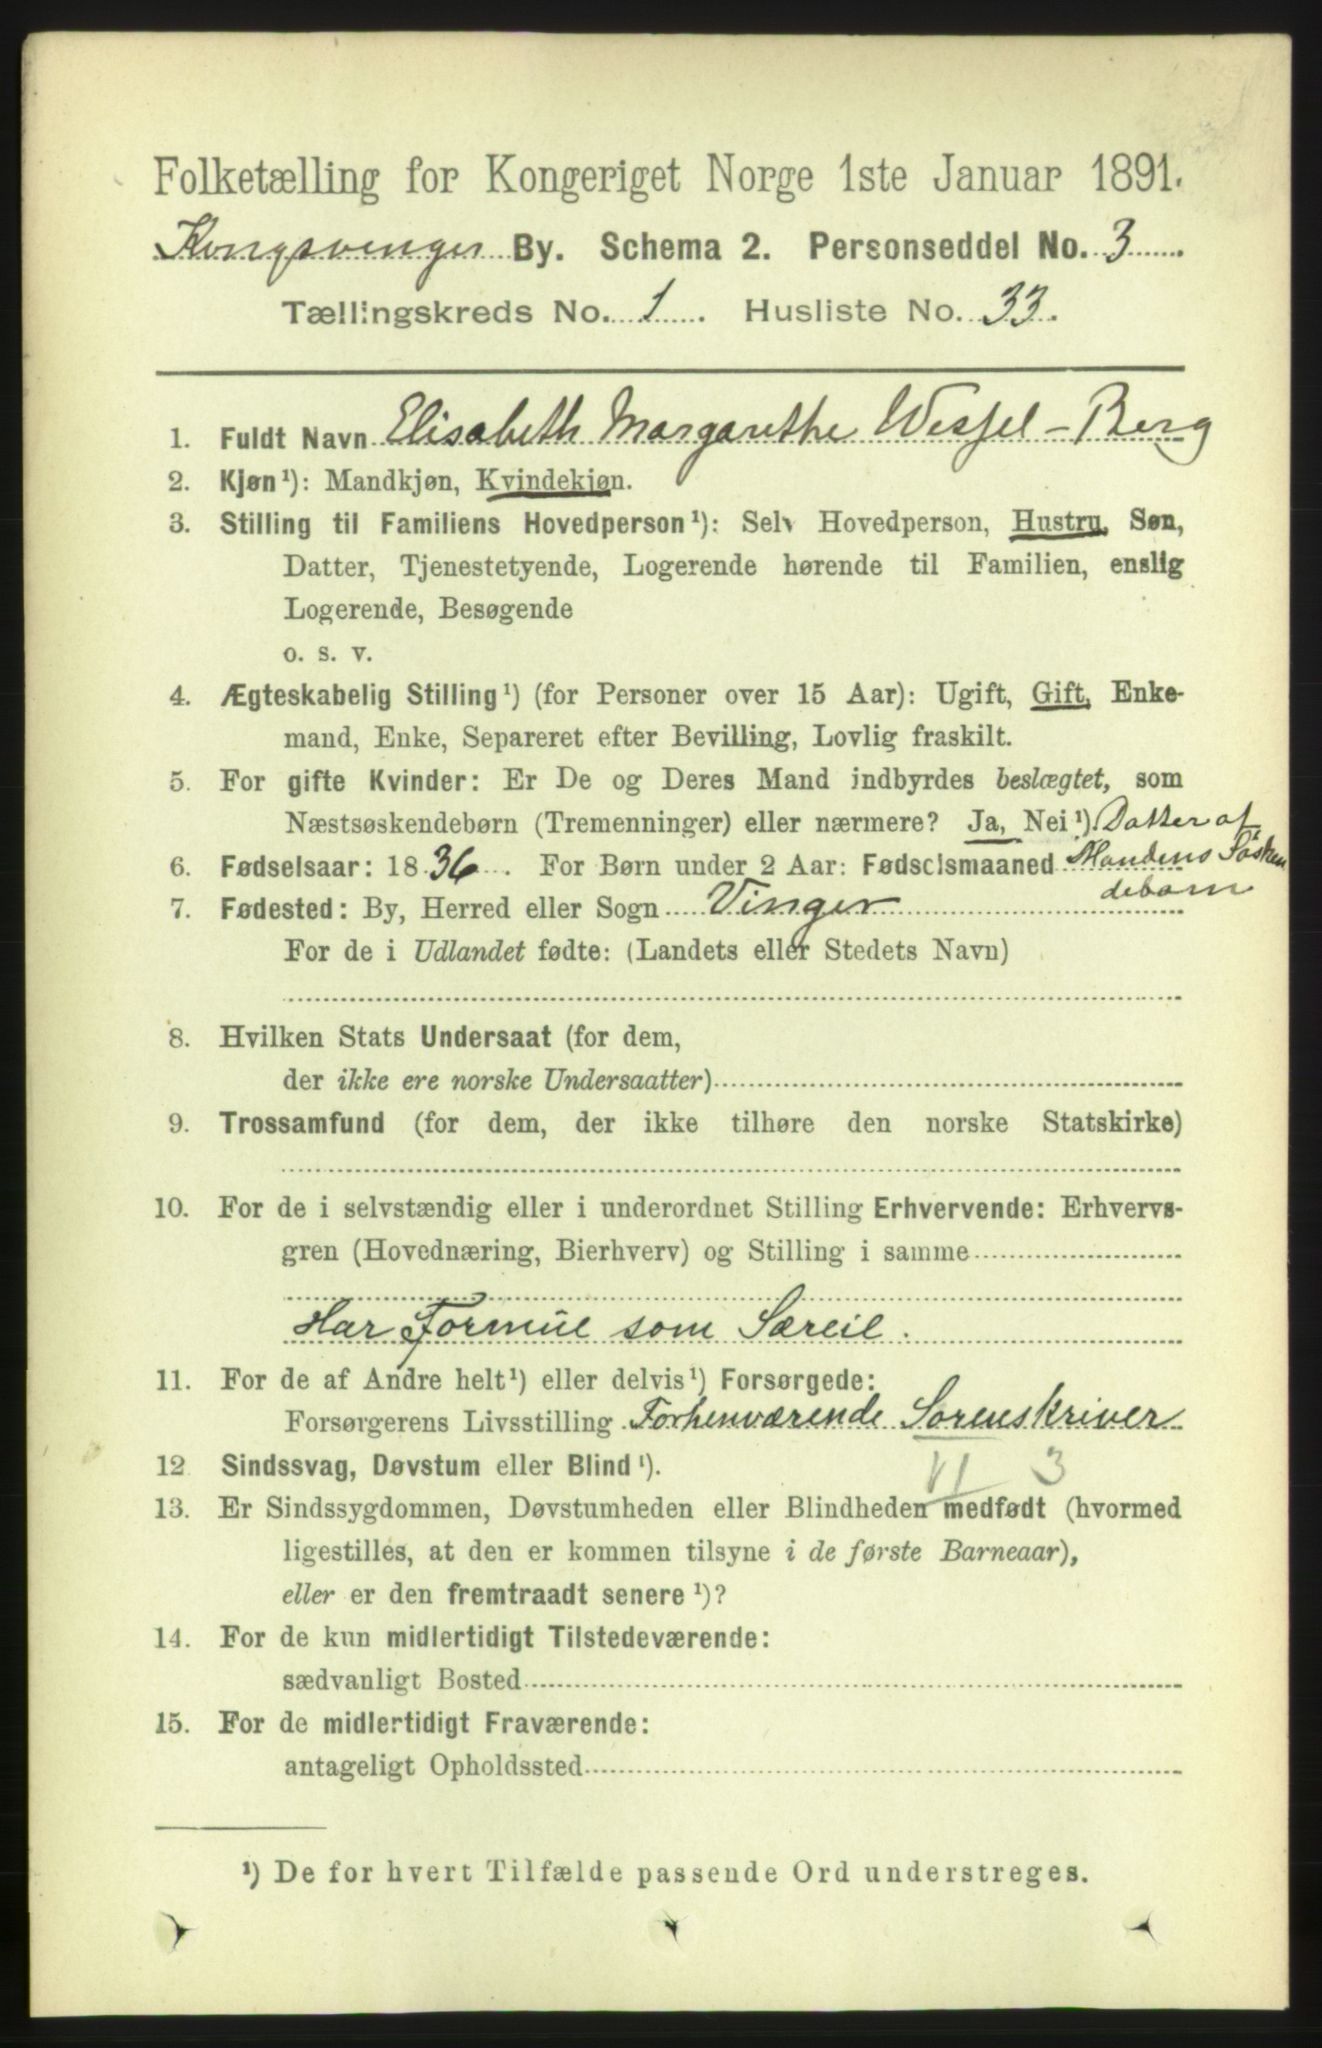 Folketælling for Kongeriget Norge 1ste Januar 1891.
Kongsvinger By. Schema 2. Personseddel No. 3
Tællingskreds No. 1. Husliste No. 33.
1. Fuldt Navn Elisabeth Margarethe Wessel-Berg
2. Kjøn¹): Mandkjøn, Kvindekjøn.
3. Stilling til Familiens Hovedperson¹): Selv Hovedperson, Hustru, Søn,
Datter, Tjenestetyende, Logerende hørende til Familien, enslig
Logerende, Besøgende
o. s. v.
4. Ægteskabelig Stilling¹) (for Personer over 15 Aar): Ugift, Gift, Enke-
mand, Enke, Separeret efter Bevilling, Lovlig fraskilt.
5. For gifte Kvinder: Er De og Deres Mand indbyrdes beslægtet, som
Næstsøskendebørn (Tremenninger) eller nærmere? Ja, Nei¹). Datter af
Mandens Søsken
debarn
6. Fødselsaar: 1836. For Børn under 2 Aar: Fødselsmaaned
7. Fødested: By, Herred eller Sogn Vinger
For de i Udlandet fødte: (Landets eller Stedets Navn)
8. Hvilken Stats Undersaat (for dem,
der ikke ere norske Undersaatter)
9. Trossamfund (for dem, der ikke tilhøre den norske Statskirke)
10. For de i selvstændig eller i underordnet Stilling Erhvervende: Erhvervs-
gren (Hovednæring, Bierhverv) og Stilling i samme
Har Formue som Særeie.
11. For de af Andre helt¹) eller delvis¹) Forsørgede:
Forsørgerens Livsstilling Forhenværende Sorenskriver
VI 3
12 Sindssvag, Døvstum eller Blind¹).
13. Er Sindssygdommen, Døvstumheden eller Blindheden medfødt (hvormed
ligestilles, at den er kommen tilsyne i de første Barneaar),
eller er den fremtraadt senere¹)?
14. For de kun midlertidigt Tilstedeværende:
sædvanligt Bosted
15. For de midlertidigt Fraværende:
antageligt Opholdssted
¹) De for hvert Tilfælde passende Ord understreges.